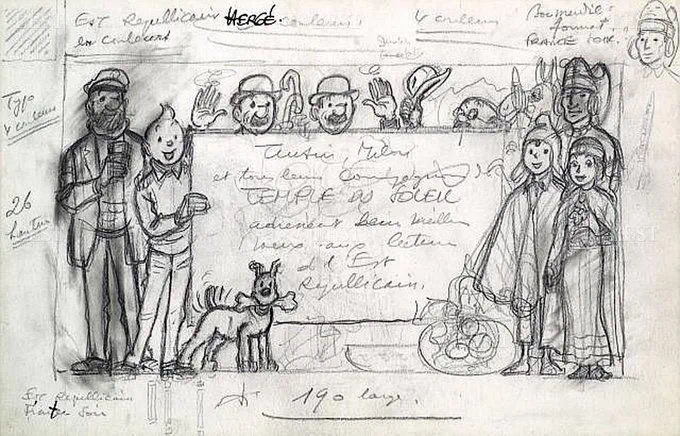 Est Republicain HERGÉ. couleurs
en couleurs
4 couleurs
format
FRANCE SOIR.
Typo
4 couleurs
26
hauteur
Tintin, Milou
et tous leurs Compagnons du
TEMPLE DU SOLEIL
adressent leurs meilleurs
voeux aux lecteurs
de l'Est
Républicain.
Est Republicain
France Soir
190 large.